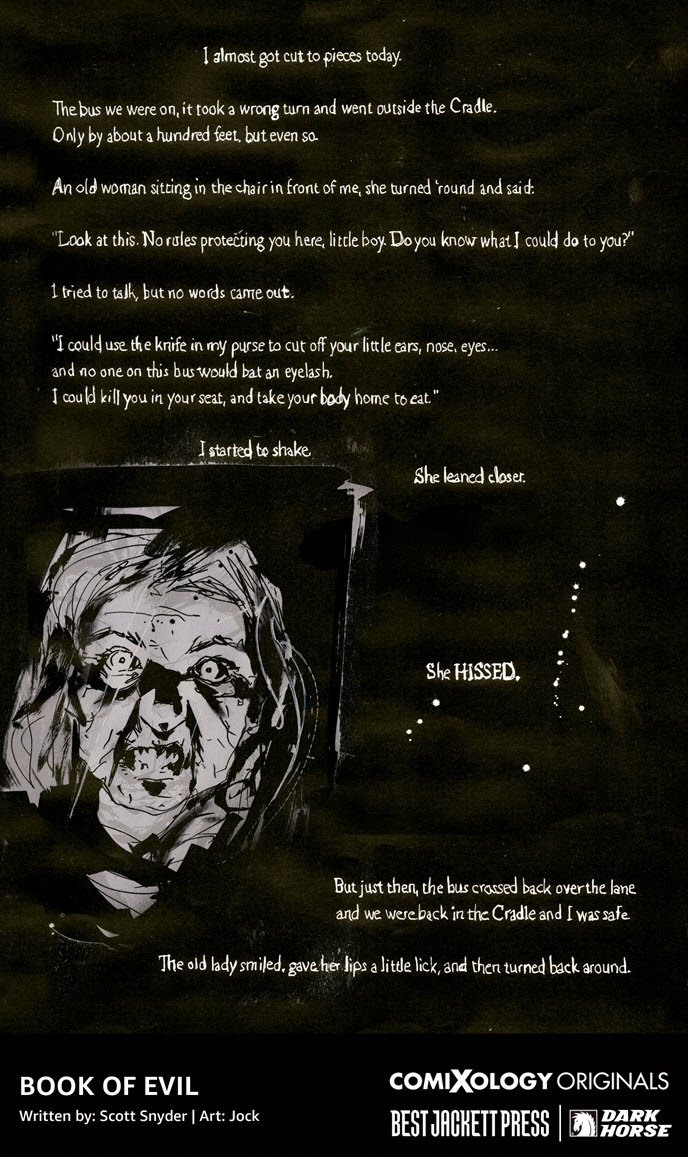 I almost got cut to pieces today.
The bus we were on, it took a wrong turn and went outside the Cradle.
Only by about a hundred feet, but even so.
An old woman sitting in the chair in front of me, she turned 'round and said:
"Look at this. No rules protecting you here, little boy. Do you know what I could do to you?"
I tried to talk, but no words came out.
"I could use the knife in my purse to cut off your little ears, nose, eyes...
and no one on this bus would bat an eyelash.
I could kill you in your seat, and take your body home to eat."
I started to shake.
She leaned closer.
She HISSED.
But just then, the bus crossed back over the lane
and we were back in the Cradle and I was safe.
The old lady smiled, gave her lips a little lick, and then turned back around.
BOOK OF EVIL
Written by: Scott Snyder | Art: Jock
COMIXOLOGY ORIGINALS
BEST JACKETT PRESS
DARK HORSE